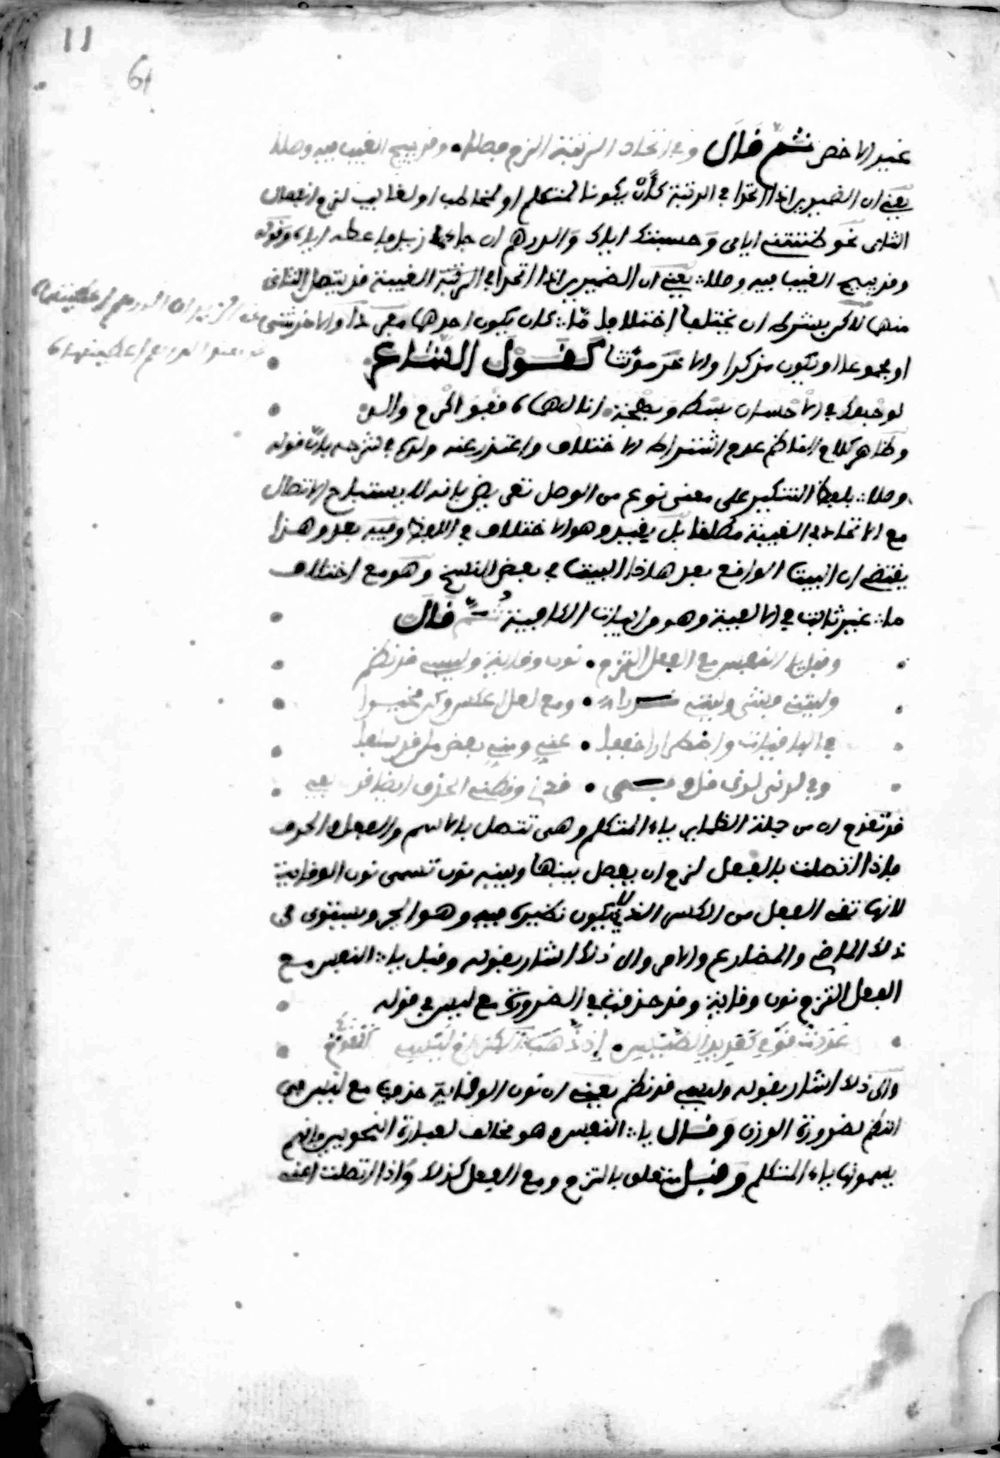 11
61
غير الاخص ثم قال وفي اتحاد الرتبة الزم فصلا وقد يبيح الغيب فيه وصلا
يعني ان الضميرين اذا اتحدا في الرتبة كأن يكونا لمتكلم او لمخاطب او لغايب لزم انفصال
الثاني نحو ظننتني اياي وحسبتك اياك والدرهم ان جاءك زيد فاعطه اياه وقوله
وقد يبيح الغيب فيه وصلا يعني ان الضميرين اذا اتحدا في الرتبة الغيبية قد يتصل الثاني
منهما لاكن بشرط ان يختلفا اختلافا ما كان يكون احدهما مفردا والاخر مثنى
او مجموعا او يكون مذكرا والاخر مؤنثا كقول الشاعر
لوجهك في الاحسان بسط وبهجة انالهماه قفو اكرم والد
وظاهر كلام الناظم عدم اشتراط الاختلاف واعتذر عنه ولده في شرحه بان قوله
وصلا بلفظ التنكير على معنى نوع من الوصل تعريض بانه لا يستباح الاتصال
مع الاتحاد في الغيبة مطلقا بل بقيد وهو الاختلاف في اللفظ وفيه بعد وهذا
يقتضي ان البيت الواقع بعد هاذا البيت في بعض النسخ وهو مع اختلاف
ما غير ثابت في الالفية وهو من ابيات الكافية ثم قال
وقبل يا النفس مع الفعل التزم نون وقاية وليسي قد نظم
وليتني فشى وليتي ندرا ومع لعل اعكس وكن مخيرا
في الباقيات واضطرارا خففا عني ومني بعض من قد سلفا
وفي لدني لدني قل وفي قدني وقطني الحذف ايضا قد يفي
قد تقدم ان من جملة الضماير ياء المتكلم وهي تتصل بالاسم والفعل والحرف
فاذا اتصلت بالفعل لزم ان يفصل بينها وبينه نون تسمى نون الوقاية
لانها تقي الفعل من الكسر الذي لا يكون نظيره فيه وهو الجر ويستوي في
ذلك الماضي والمضارع والامر والى ذلك اشار بقوله وقبل يا النفس مع
الفعل التزم نون وقاية وقد حذفت في الضرورة مع ليس في قوله
عددت قومي كعديد الطيس اذ ذهب القوم الكرام ليسي
والى ذلك اشار بقوله وليسي قد نظم يعني ان نون الوقاية حذفت مع ليس في
النظم لضرورة الوزن وقال يا النفس وهو مخالف لعبارة النحويين فانهم
يسمونها ياء المتكلم وقبل متعلق بالتزم ومع الفعل كذلك واذا اتصلت اعني